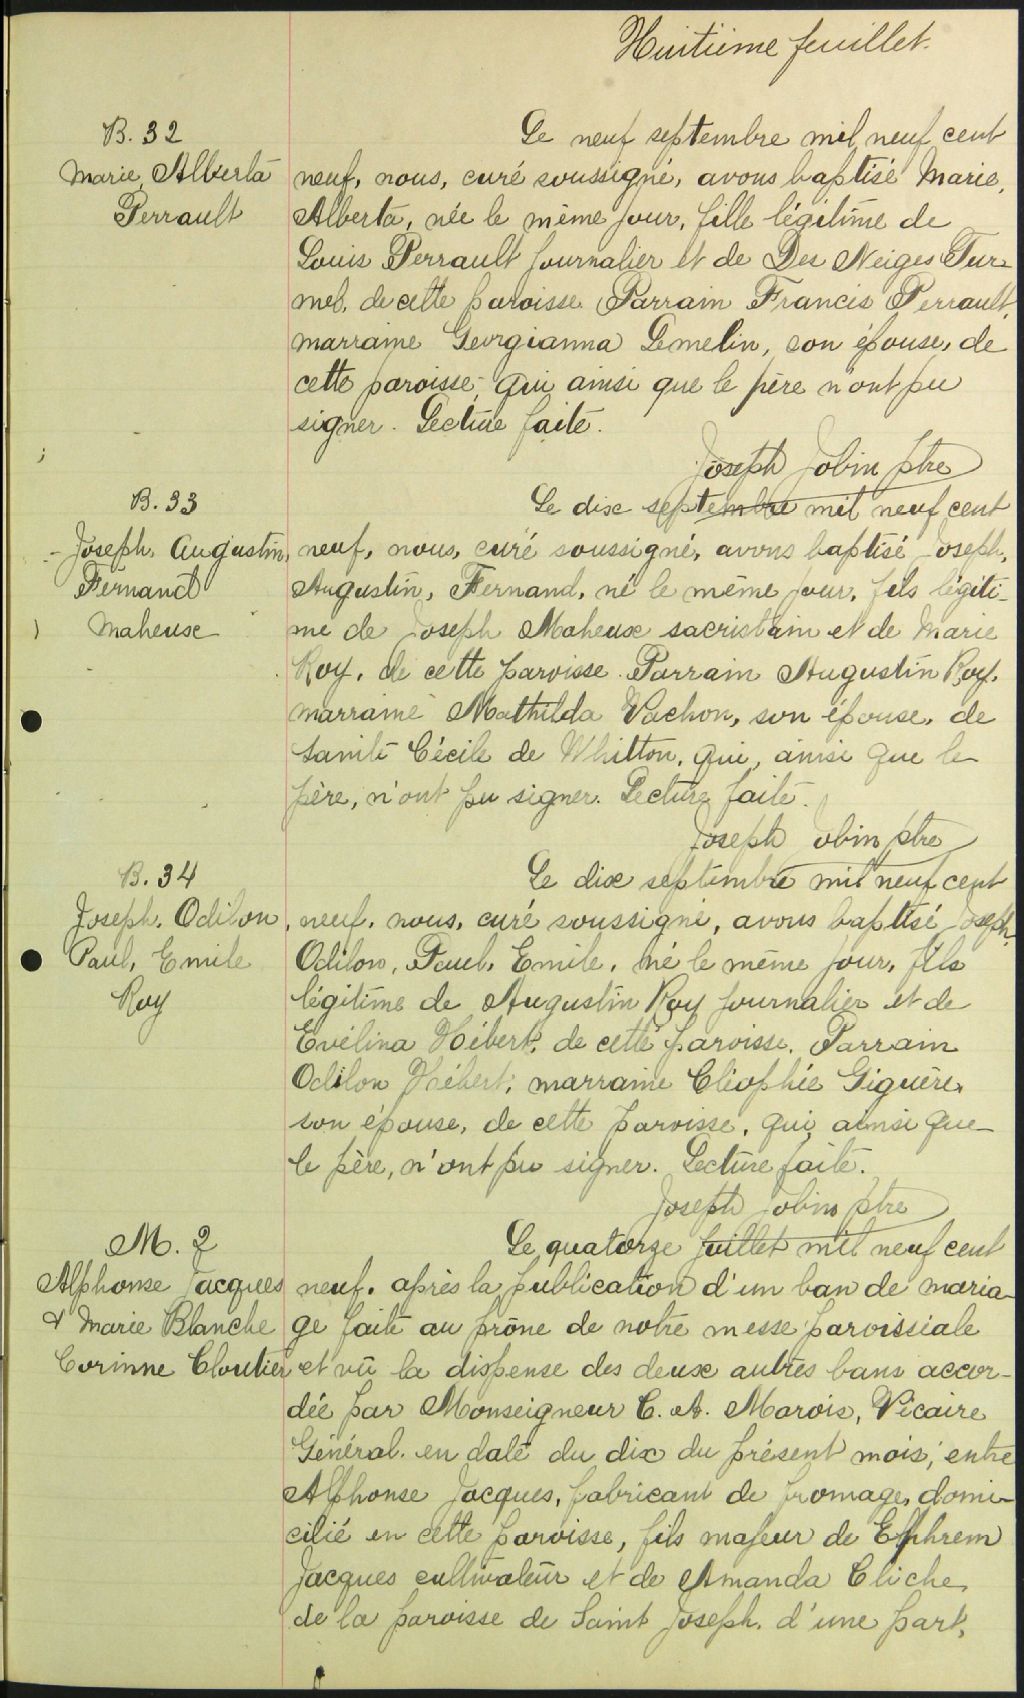 Huitième feuillet.
B. 32
Marie, Alberta
Perrault
Le neuf septembre mil neuf cent
neuf, nous, curé soussigné, avons baptisé Marie,
Alberta, née le même jour, fille légitime de
Louis Perrault journalier et de Des Neiges Tur-
mel, de cette paroisse. Parrain Francis Perrault,
marraine Georgianna Lemelin, son épouse, de
cette paroisse, qui ainsi que le père n'ont pu
signer. Lecture faite.
Joseph Jobin ptre
B. 33
Joseph, Augustin,
Fernand
Maheux
Le dix septembre mil neuf cent
neuf, nous, curé soussigné, avons baptisé Joseph,
Augustin, Fernand, né le même jour, fils légiti-
me de Joseph Maheux sacristain et de Marie
Roy, de cette paroisse. Parrain Augustin Roy,
marraine Mathilda Vachon, son épouse, de
Sainte Cécile de Whitton, qui, ainsi que le
père, n'ont pu signer. Lecture faite.
Joseph Jobin ptre
B. 34
Joseph, Odilon,
Paul, Emile
Roy
Le dix septembre mil neuf cent
neuf, nous, curé soussigné, avons baptisé Joseph,
Odilon, Paul, Emile, né le même jour, fils
légitime de Augustin Roy journalier et de
Evélina Hébert, de cette paroisse. Parrain
Odilon Hébert, marraine Cléophée Giguère,
son épouse, de cette paroisse, qui, ainsi que
le père, n'ont pu signer. Lecture faite.
Joseph Jobin ptre
M. 2
Alphonse Jacques
& Marie Blanche
Corinne Cloutier
Le quatorze juillet mil neuf cent
neuf, après la publication d'un ban de maria-
ge faite au prône de notre messe paroissiale
et vû la dispense des deux autres bans accor-
dée par Monseigneur C. A. Marois, Vicaire
Général, en date du dix du présent mois, entre
Alphonse Jacques, fabricant de fromage, domi-
cilié en cette paroisse, fils majeur de Ephrem
Jacques cultivateur et de Amanda Cliche,
de la paroisse de Saint Joseph, d'une part,